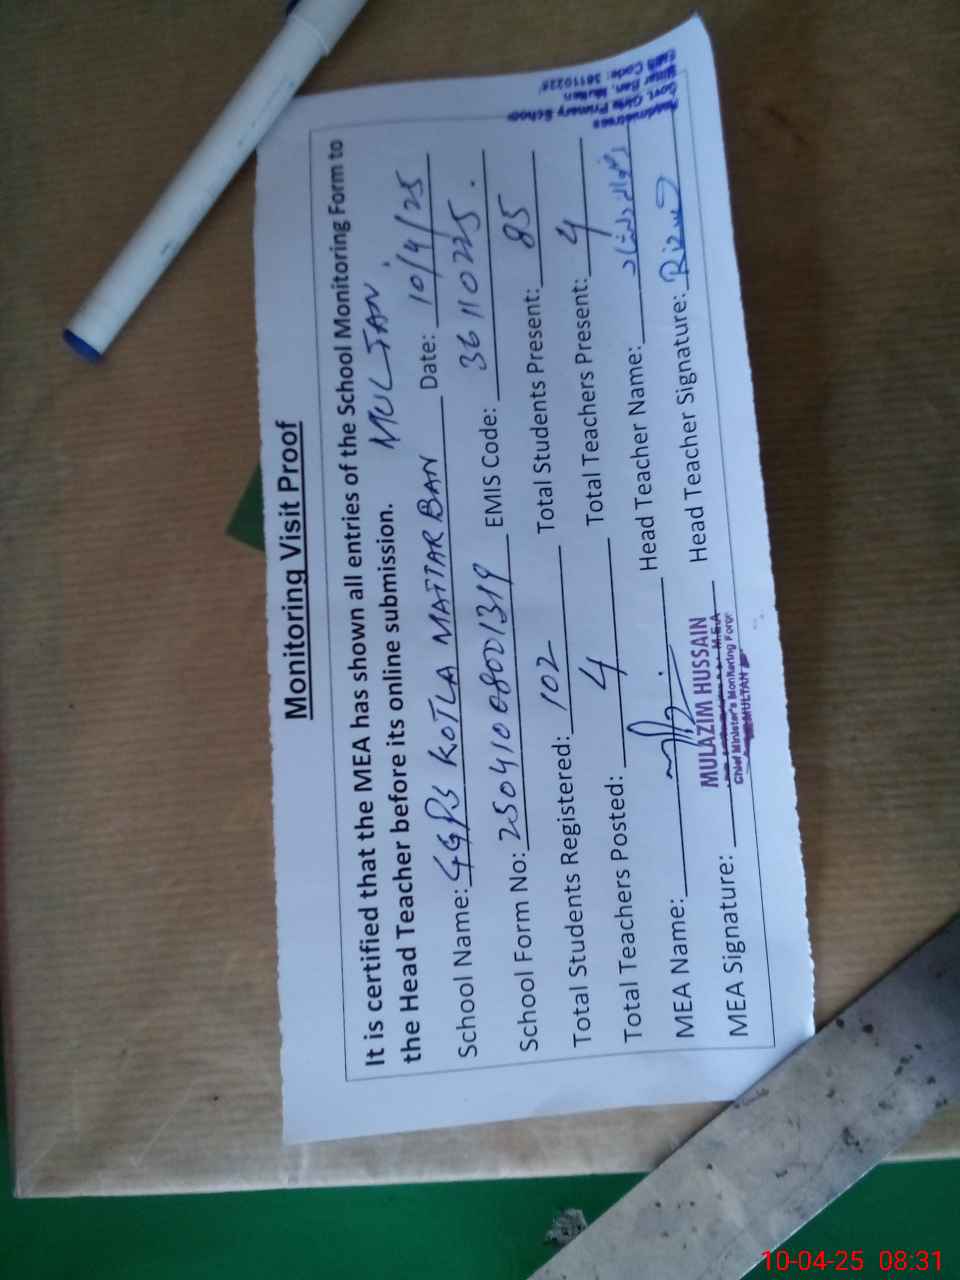 Monitoring Visit Proof
It is certified that the MEA has shown all entries of the School Monitoring Form to
the Head Teacher before its online submission. MULTAN
School Name: GGPS KOTLA MATTAR BAN Date: 10/4/25
School Form No: 25041008001319 EMIS Code: 36110225
Total Students Registered: 102 Total Students Present: 85
Total Teachers Posted: 4 Total Teachers Present: 4
MEA Name: Head Teacher Name: دلشاد
MEA Signature: Head Teacher Signature:
MULAZIM HUSSAIN
M.E.A
Chief Minister's Monitoring Force
MULTAN
Headmistress
Govt. Girls Primary School
Ban, Multan
EMIS Code: 36110225
10-04-25 08:31